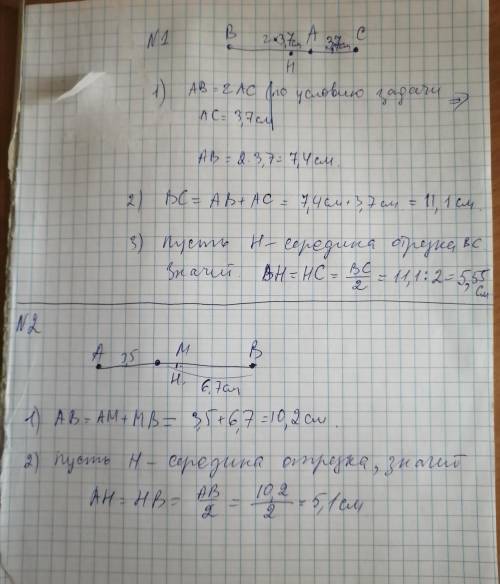 N1
B 2·3,7см A 3,7см C
H
1) AB = 2AC по условию задачи ⇒
AC = 3,7см
AB = 2·3,7 = 7,4см.
2) BC = AB + AC = 7,4см + 3,7см = 11,1см.
3) Пусть H – середина отрезка BC
значит. BH = HC = BC/2 = 11,1 : 2 = 5,55 см
N2
A 3,5 M B
H
6,7см
1) AB = AM + MB = 3,5 + 6,7 = 10,2см.
2) Пусть H – середина отрезка, значит
AH = HB = AB/2 = 10,2/2 = 5,1см